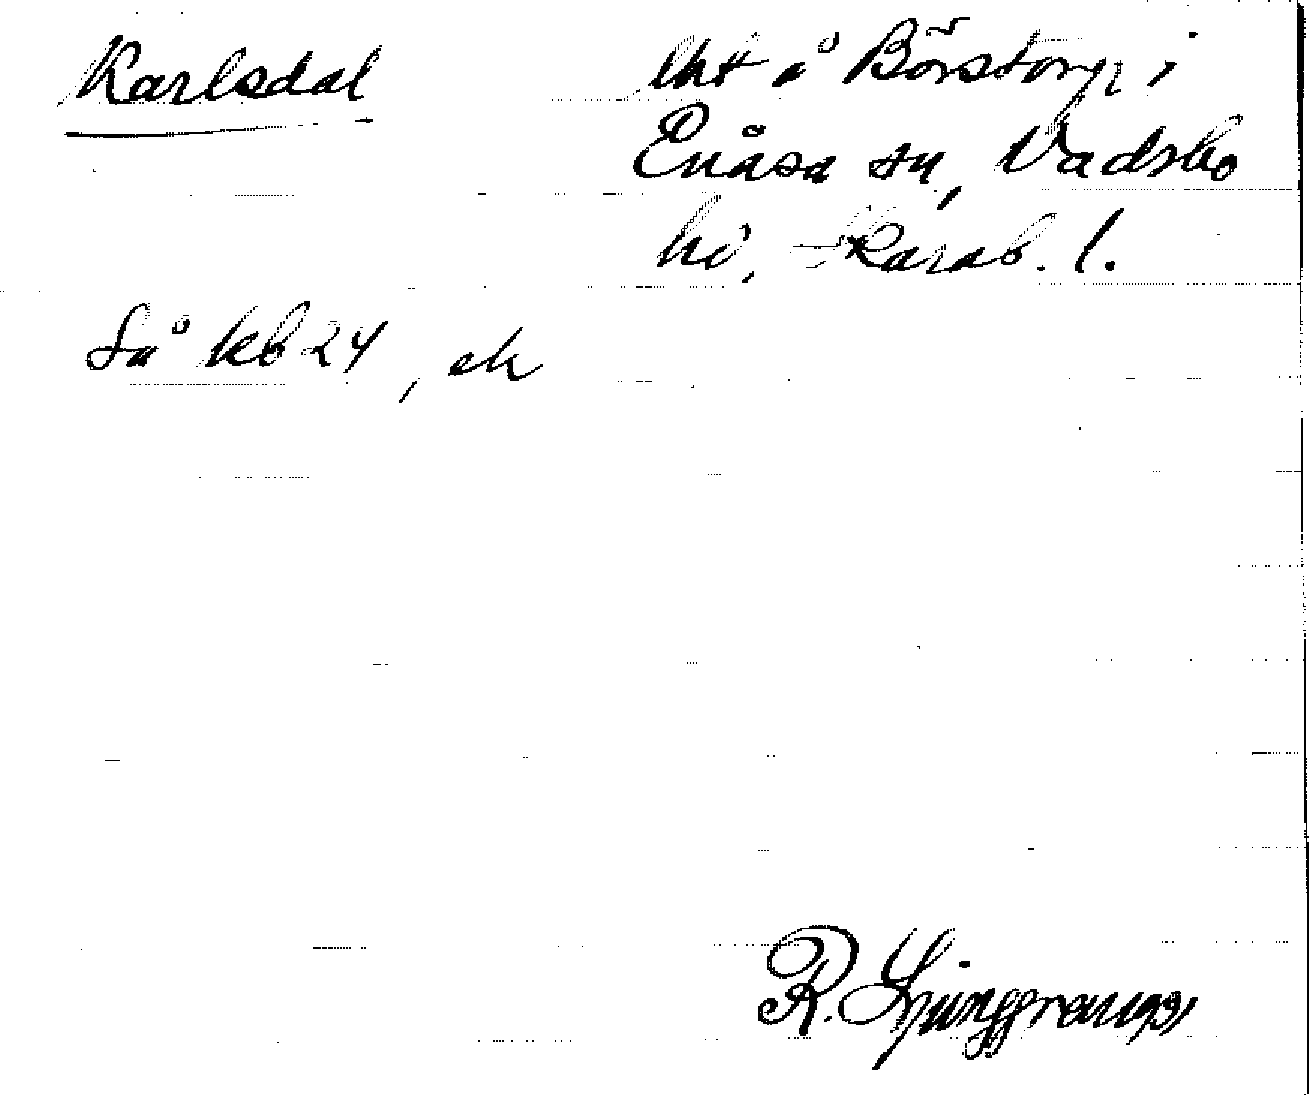 Karlsdal
lht å Börstorp i
Enåsa sn, Vadsbo
hd, Skarab. l.
Så kb 24, ek
R. Ljunggren 1931